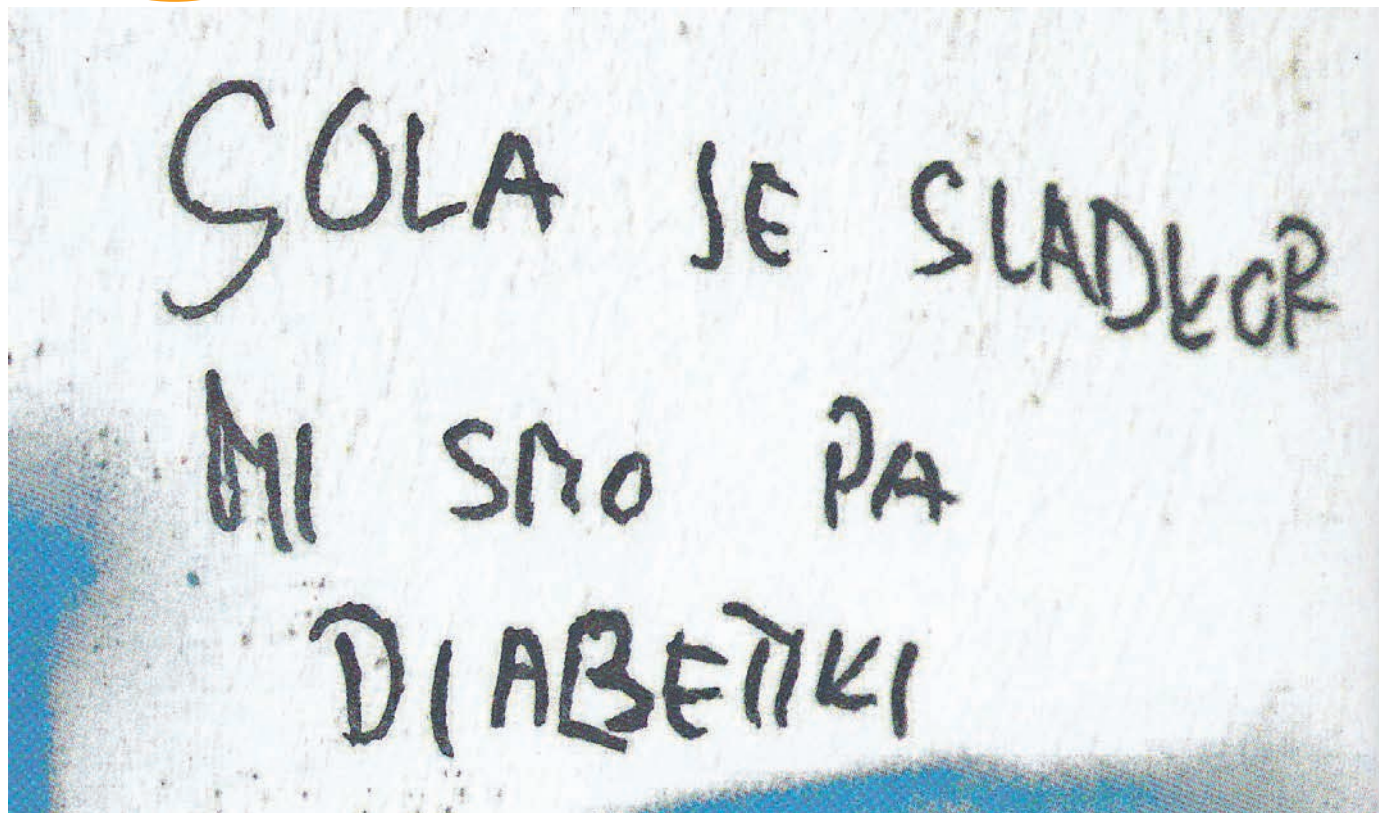 SOLA JE SLADKOR
MI SMO PA
DIABETIKI